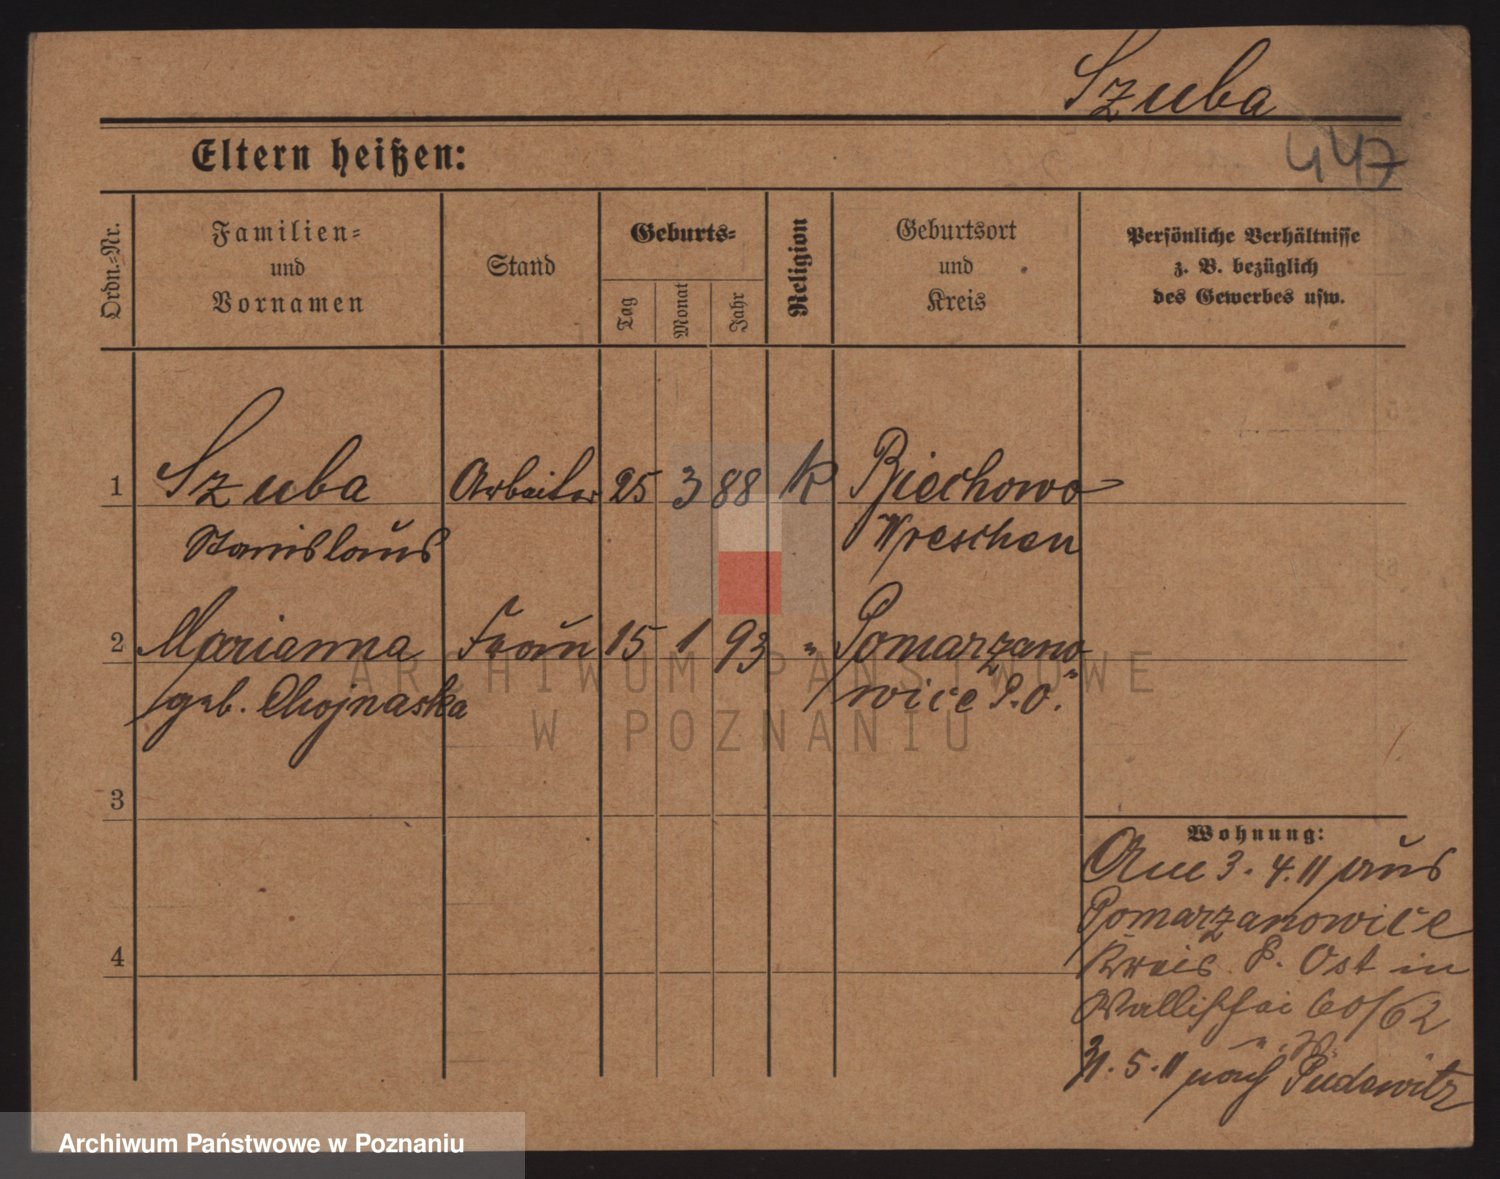 Szuba
447
Eltern heißen:
Ordn.-Nr.
Familien-
und
Vornamen
Stand
Geburts-
Tag
Monat
Jahr
Religion
Geburtsort
und
Kreis
Persönliche Verhältnisse
z. B. bezüglich
des Gewerbes usw.
1 Szuba Arbeiter 25 3 88 K Biechowo
Stanislaus Wreschen
2 Marianna Frau 15 1 93 " Pomarzano
geb. Chojnaska wice P.O.
3
4
Wohnung:
Am 3.4.11 aus
Pomarzanowice
Kreis P. Ost in
Wallischei 60/62
31.5.11 nach Pudewitz
ARCHIWUM PAŃSTWOWE
W POZNANIU
Archiwum Państwowe w Poznaniu